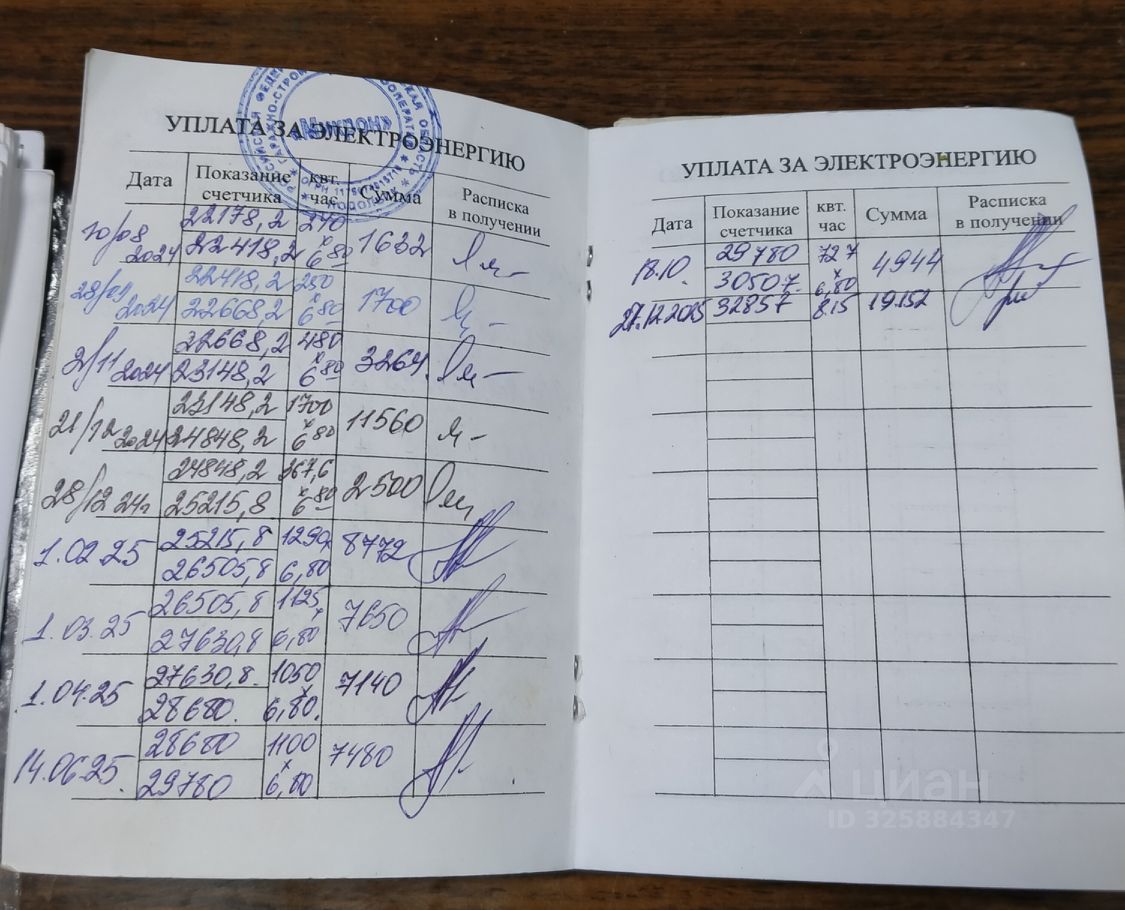 УПЛАТА ЗА ЭЛЕКТРОЭНЕРГИЮ
Дата Показание счетчика квт. час Сумма Расписка в получении
10/08 2024 22178,2 240 1632
22418,2 x 6 80
28/09 2024 22418,2 250 1700
22668,2 x 6 80
2/11 2024 22668,2 480 3264
23148,2 x 6 80
21/12 2024 23148,2 1700 11560
24848,2 x 6 80
28/12 24г 24848,2 367,6 2500
25215,8 x 6 80
1.02.25 25215,8 1290 8772
26505,8 6,80
1.03.25 26505,8 1125 7650
27630,8 x 6,80
1.04.25 27630,8 1050 7140
28680 x 6,80
14.06.25 28680 1100 7480
29780 x 6,80
УПЛАТА ЗА ЭЛЕКТРОЭНЕРГИЮ
Дата Показание счетчика квт. час Сумма Расписка в получении
18.10. 29780 727 4944
30507 x 6,80
27.12.2025 32857 8.15 19.152
циан
ID 325884347